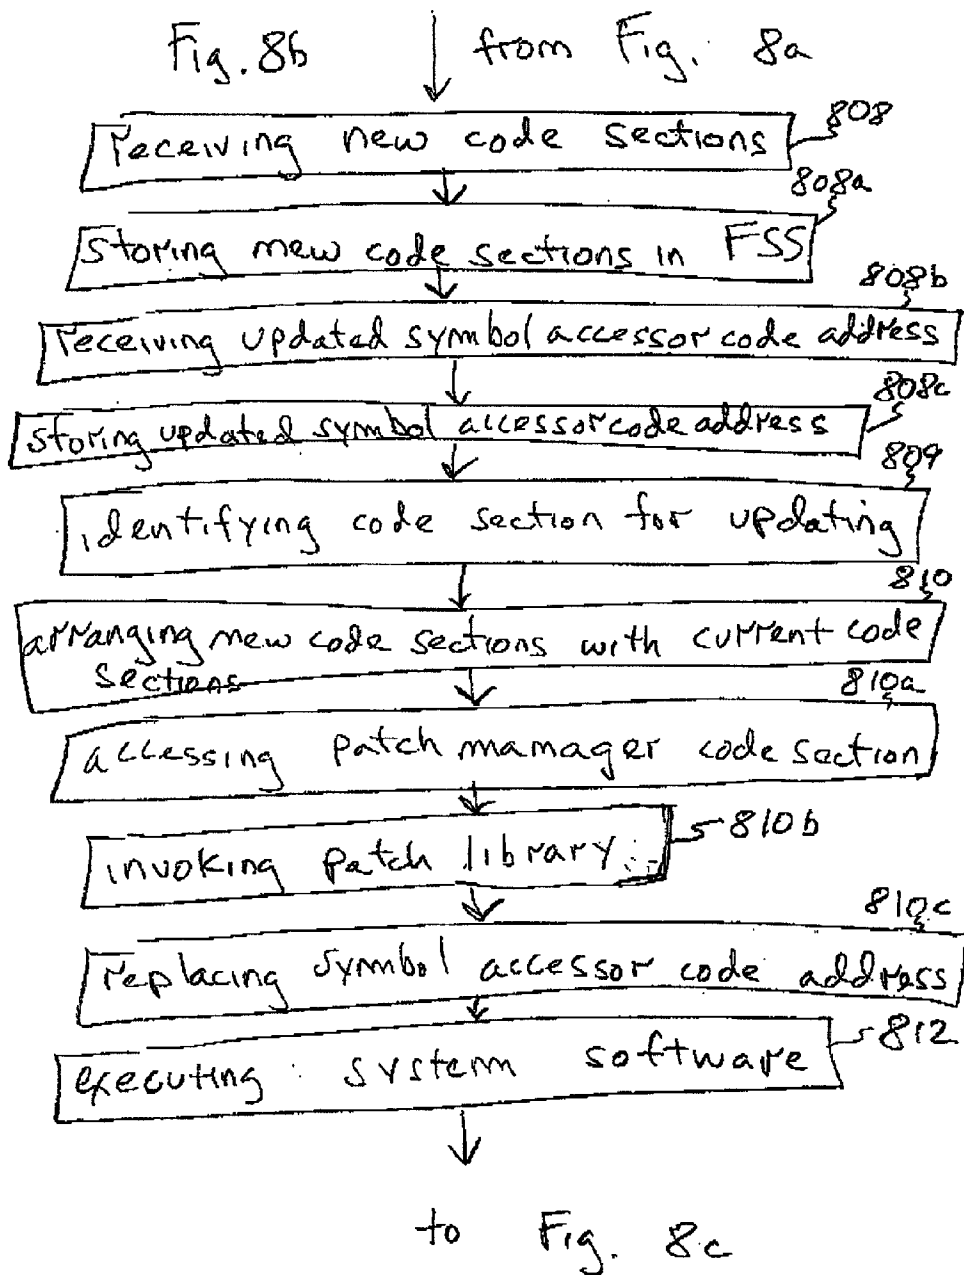 Fig. 8b from Fig. 8a
receiving new code sections 808
808a
storing new code sections in FSS
808b
receiving updated symbol accessor code address
808c
storing updated symbol accessor code address
809
identifying code section for updating
810
arranging new code sections with current code
sections
810a
accessing patch manager code section
invoking patch library 810b
810c
replacing symbol accessor code address
executing system software 812
to Fig. 8c